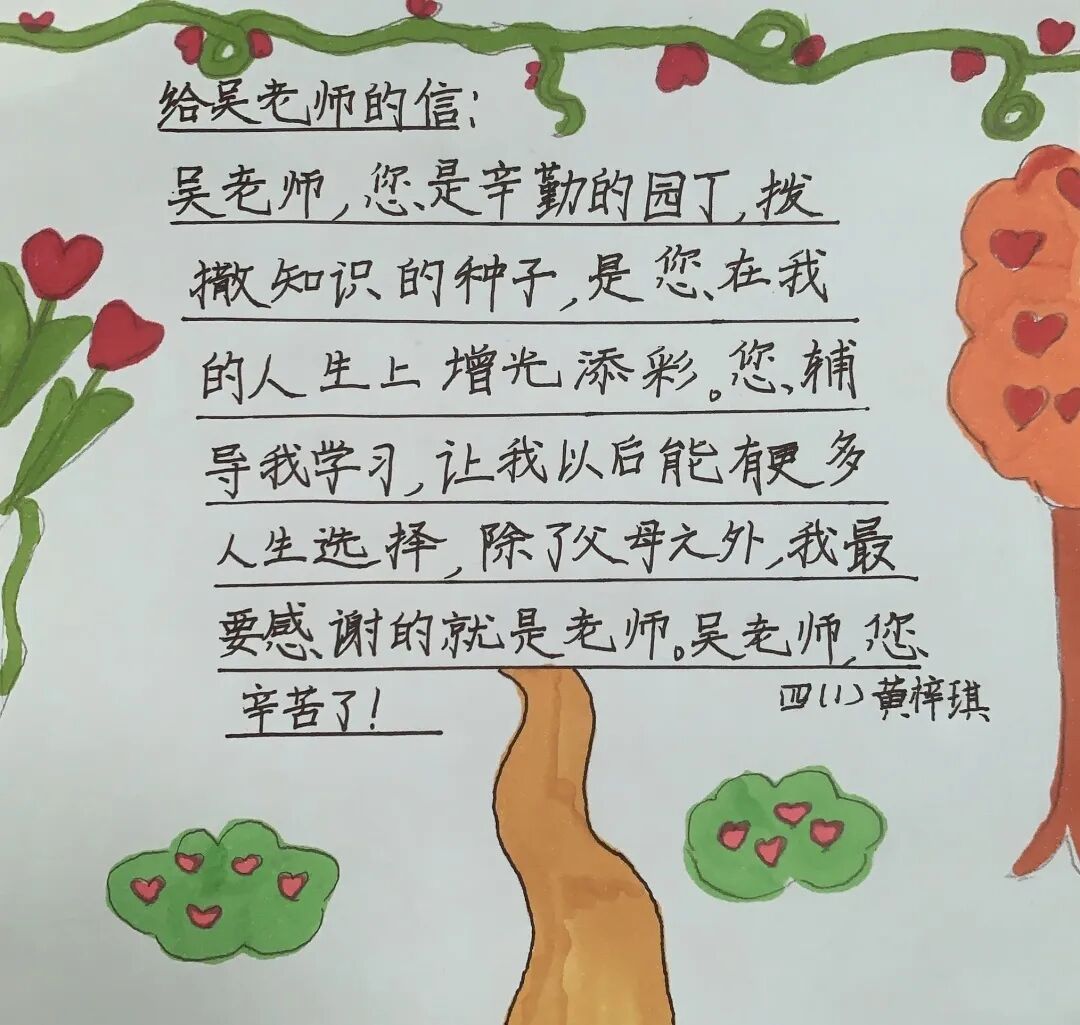 给吴老师的信:
吴老师,您是辛勤的园丁,拨
撒知识的种子,是您在我
的人生上增光添彩。您辅
导我学习,让我以后能有更多
人生选择,除了父母之外,我最
要感谢的就是老师。吴老师,您
辛苦了!
四(1)黄梓琪